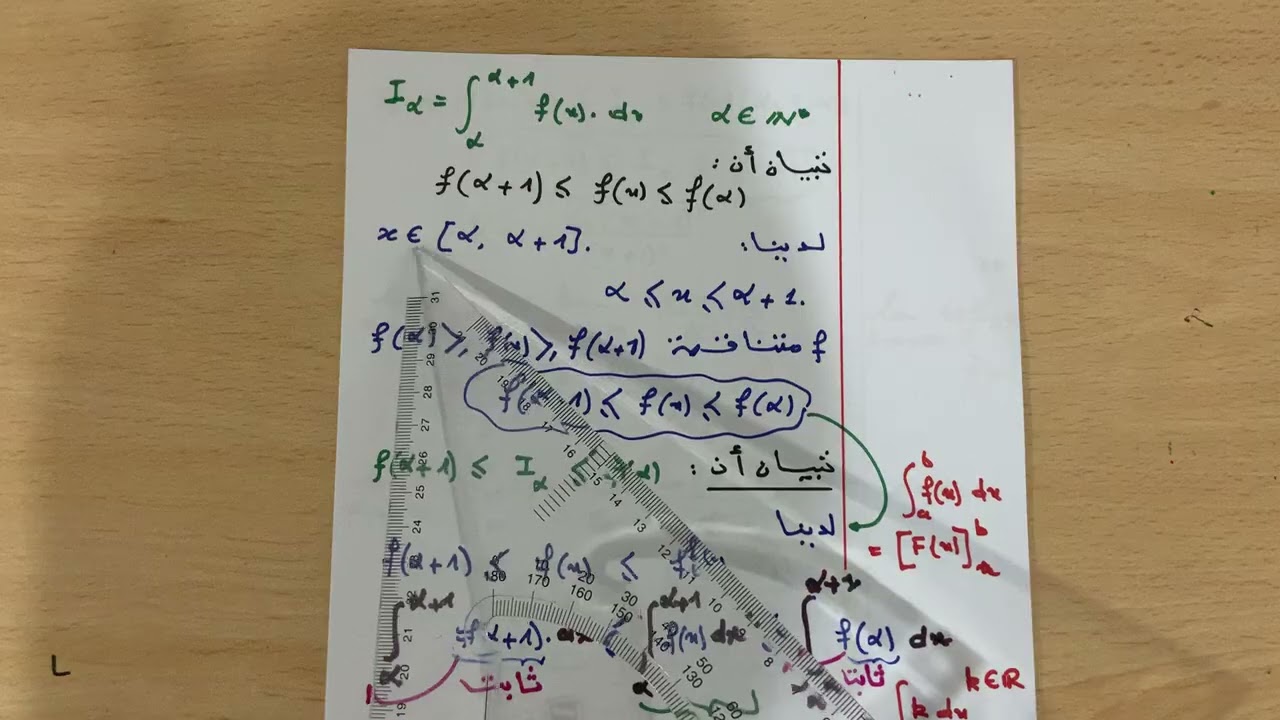 I_α = ∫_α^{α+1} f(x). dx    α ∈ ℕ*
نبيان أن :
f(α+1) ≤ f(x) ≤ f(α)
لدينا: x ∈ [α, α+1].
α ≤ x ≤ α+1.
f متناقصة f(α) ≥ f(x) ≥ f(α+1)
f(α+1) ≤ f(x) ≤ f(α)
نبيان أن : f(α+1) ≤ I_α ≤ f(α)
لدينا
f(α+1) ≤ f(x) ≤
∫_α^{α+1} f(α+1). dx ≤ ∫_α^{α+1} f(x) dx ≤ ∫^{α+1} f(α) dx
ثابتا ثابتا
∫_a^b f(x) dx
= [F(x)]^b
k ∈ ℝ
∫ k dx
31 30 29 28 27 26 25 24 21 20 19
20 19 18 17 16 15 14 13 12 11 10 8
180 170 160 150 130
20 30 50 60